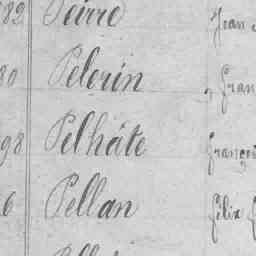 82 Peivre Jean
80 Pelerin Fran
98 Pelhâte Françoi
6 Pellan Félix